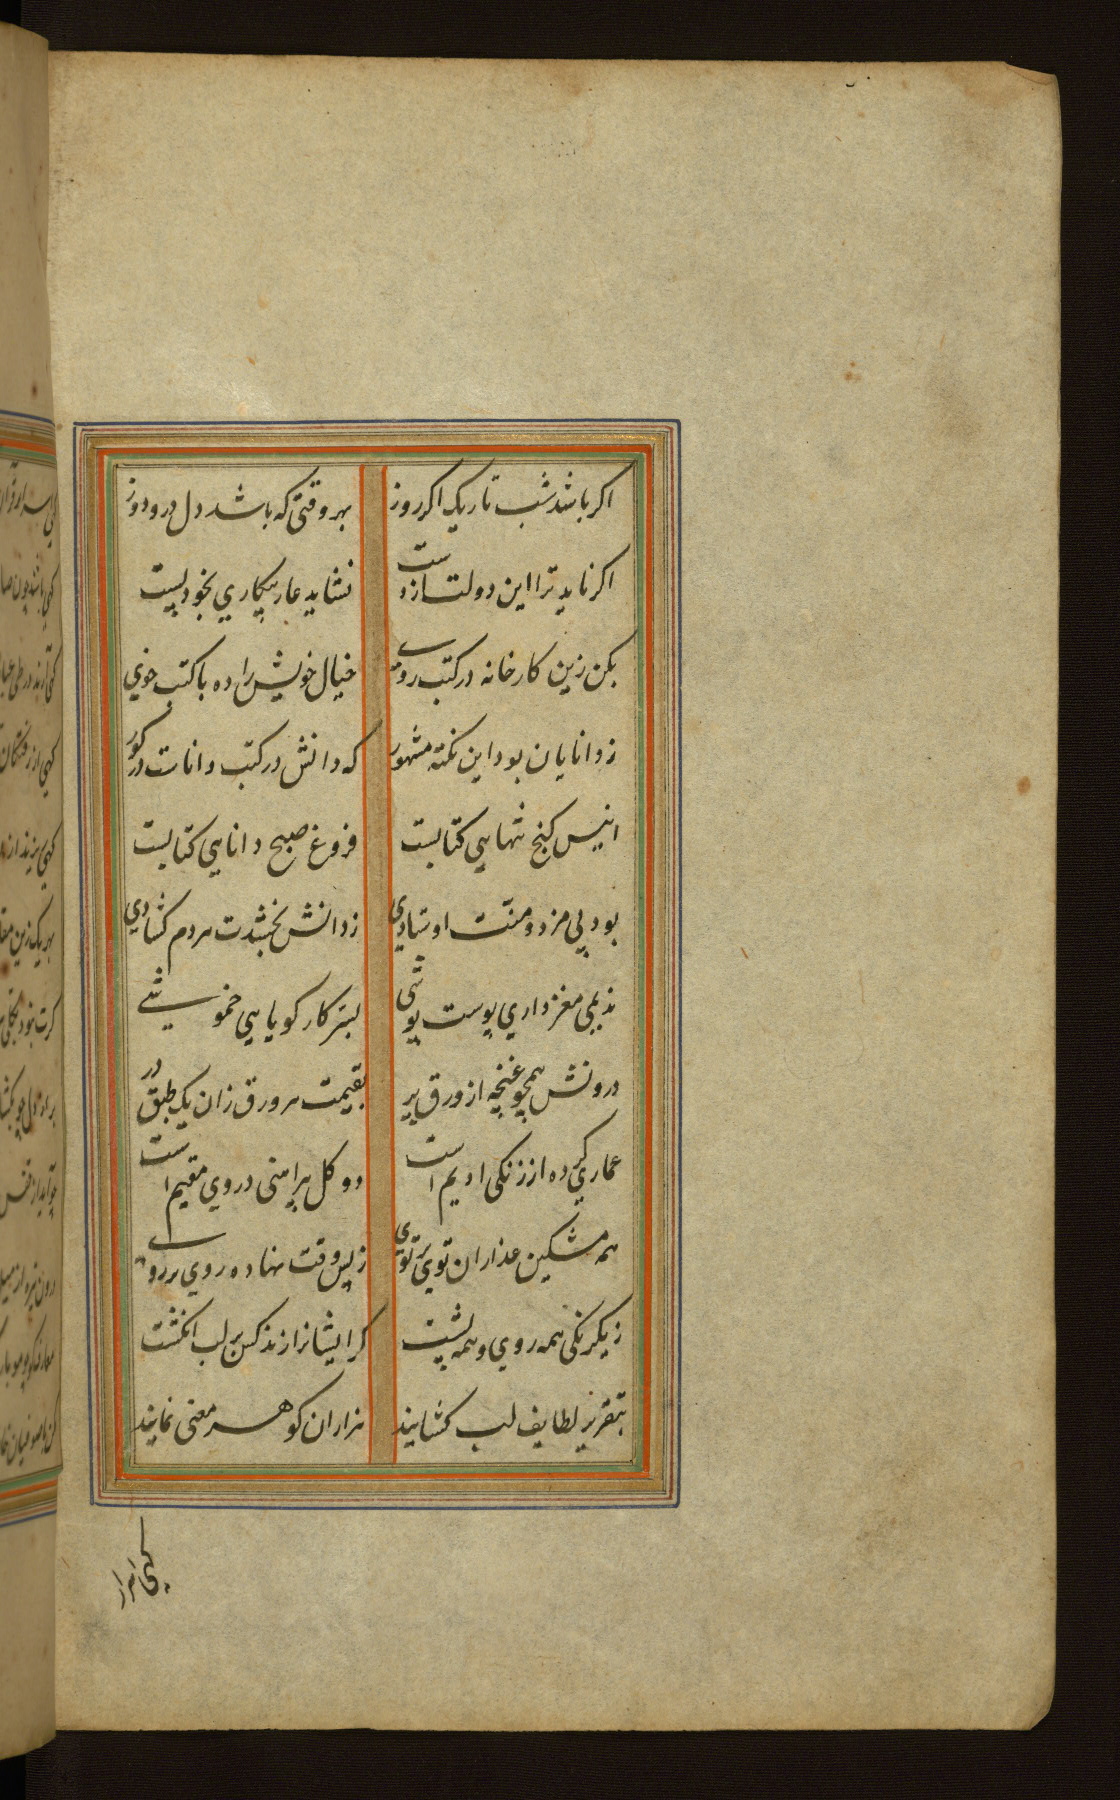 اکر باشد شب تاریک اکر روز بهر وقتی که باشد دل درو دوز
اکر ناید ترا این دولت از دست نشاید عار بیکاری بخود بست
بکن زین کارخانه در کتب روی خیال خویش را ده با کتب خوی
ز دانایان بود این نکته مشهور که دانش در کتب دانات در کور
انیس کنج تنهایی کتابست فروغ صبح دانایی کتابست
بود بی مزد و منت اوستادی ز دانش بخشدت هر دم کشادی
ندیمی مغز داری پوست پوشی بسر کار کویایی خموشی
درونش همچو غنچه از ورق پر بقیمت هر ورق زان یک طبق در
عماری کرده از زنکی ادیم است دو کل پیراهنی در وی مقیم است
همه مشکین عذاران توی بر توی ز پس وقت نهاده روی بر روی
ز یکرنکی همه روی و همه پشت کر ایشانرا زند کس بر لب انکشت
بتقریر لطایف لب کشایند هزاران کوهر معنی نمایند
کهی اسرار